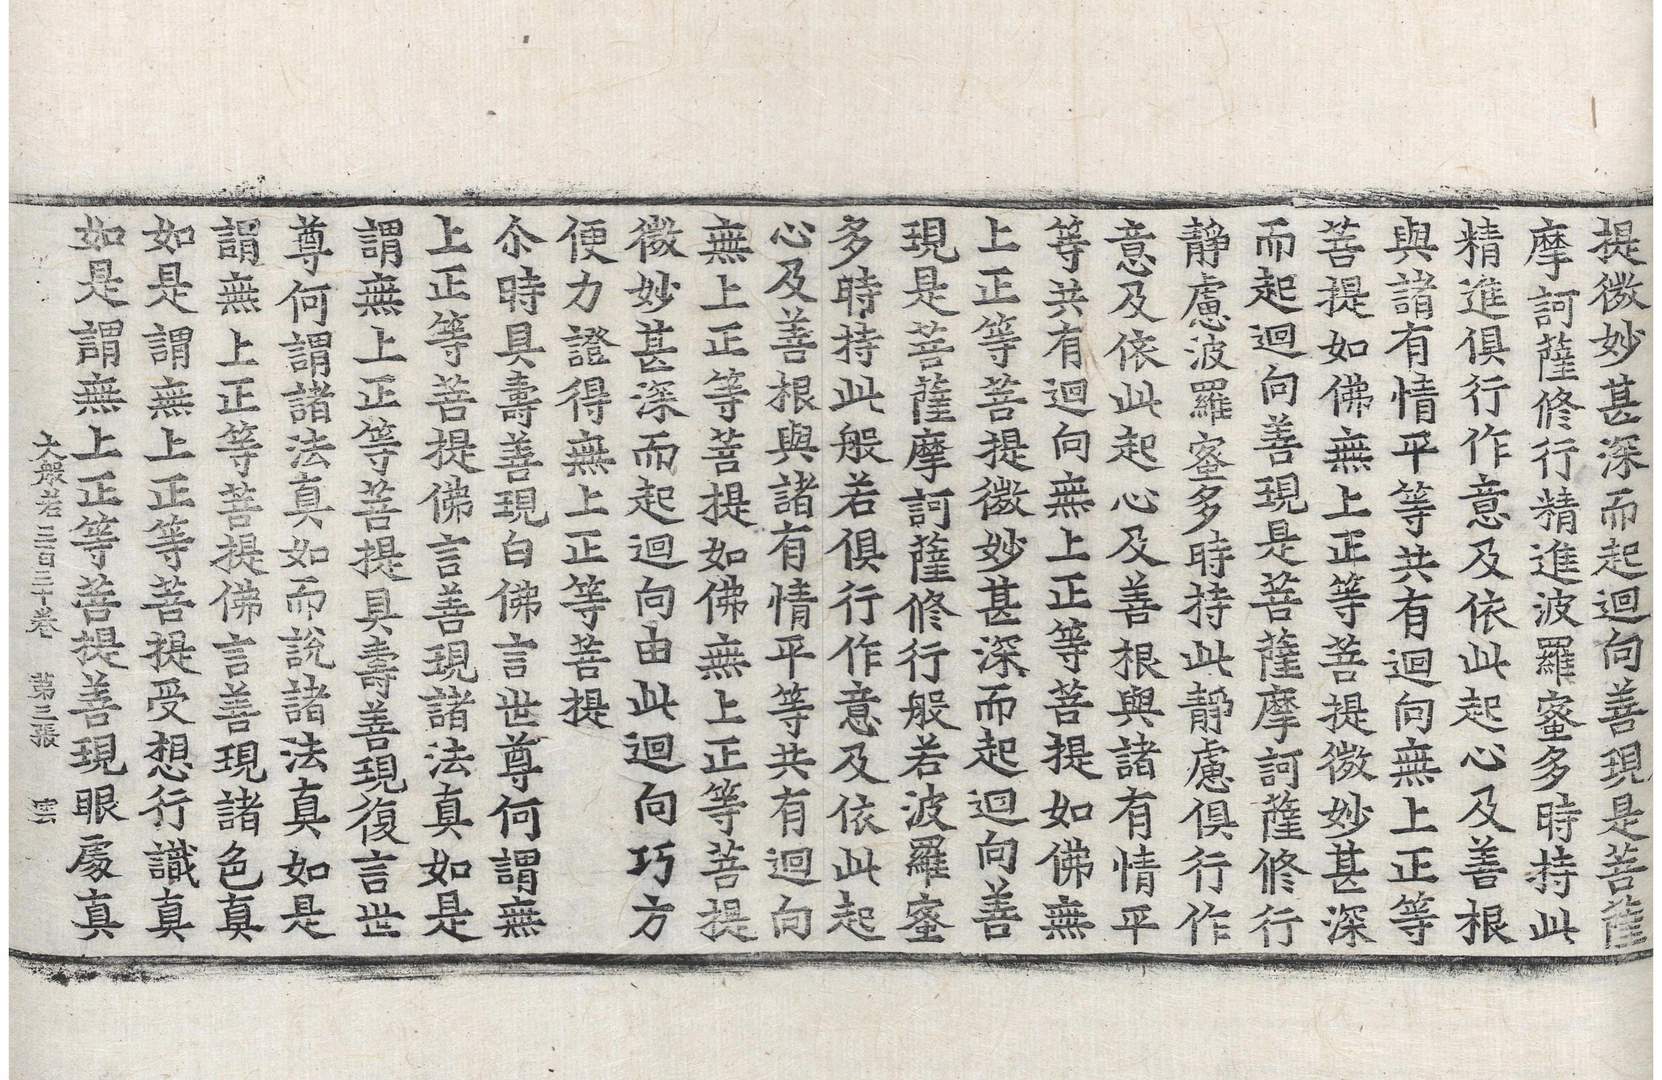 提微妙甚深而起迴向善現是菩薩
摩訶薩修行精進波羅蜜多時持此
精進俱行作意及依此起心及善根
與諸有情平等共有迴向無上正等
菩提如佛無上正等菩提微妙甚深
而起迴向善現是菩薩摩訶薩修行
靜慮波羅蜜多時持此靜慮俱行作
意及依此起心及善根與諸有情平
等共有迴向無上正等菩提如佛無
上正等菩提微妙甚深而起迴向善
現是菩薩摩訶薩修行般若波羅蜜
多時持此般若俱行作意及依此起
心及善根與諸有情平等共有迴向
無上正等菩提如佛無上正等菩提
微妙甚深而起迴向由此迴向巧方
便力證得無上正等菩提
尒時具壽善現白佛言世尊何謂無
上正等菩提佛言善現諸法真如是
謂無上正等菩提具壽善現復言世
尊何謂諸法真如而說諸法真如是
謂無上正等菩提佛言善現諸色真
如是謂無上正等菩提受想行識真
如是謂無上正等菩提善現眼處真
大般若三百二十卷　第三張　雲